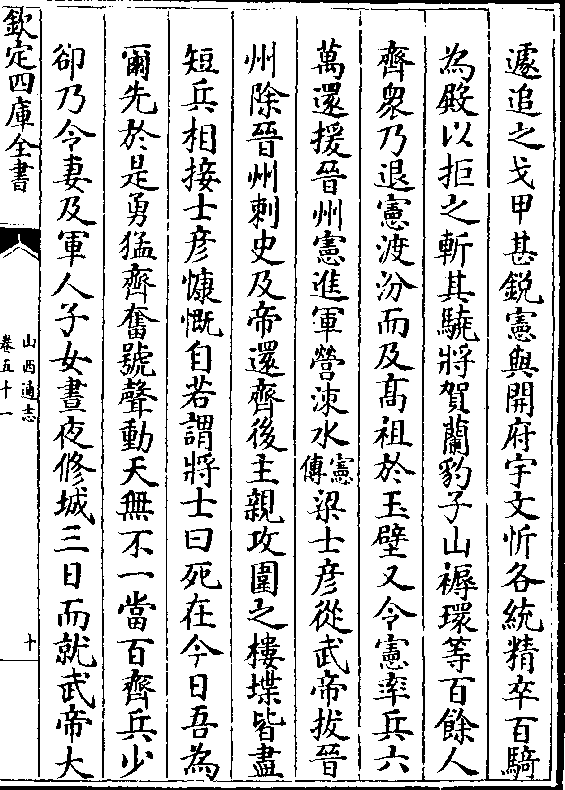 遽追之戈甲甚鋭憲與開府宇文忻各統精卒百騎
為殿以拒之斬其驍將賀蘭豹子山褥環等百餘人
齊衆乃退憲渡汾而及髙祖於玉壁又令憲率兵六
萬還援晉州憲進軍營涑水憲傳梁士彦從武帝拔晉
州除晉州刺史及帝還齊後主親攻圍之樓堞皆盡
短兵相接士彦慷慨自若謂將士曰死在今日吾為
爾先於是勇猛齊奮號聲動天無不一當百齊兵少
卻乃令妻及軍人子女晝夜修城三日而就武帝大
欽定四庫全書
山西通志
卷五十一
十